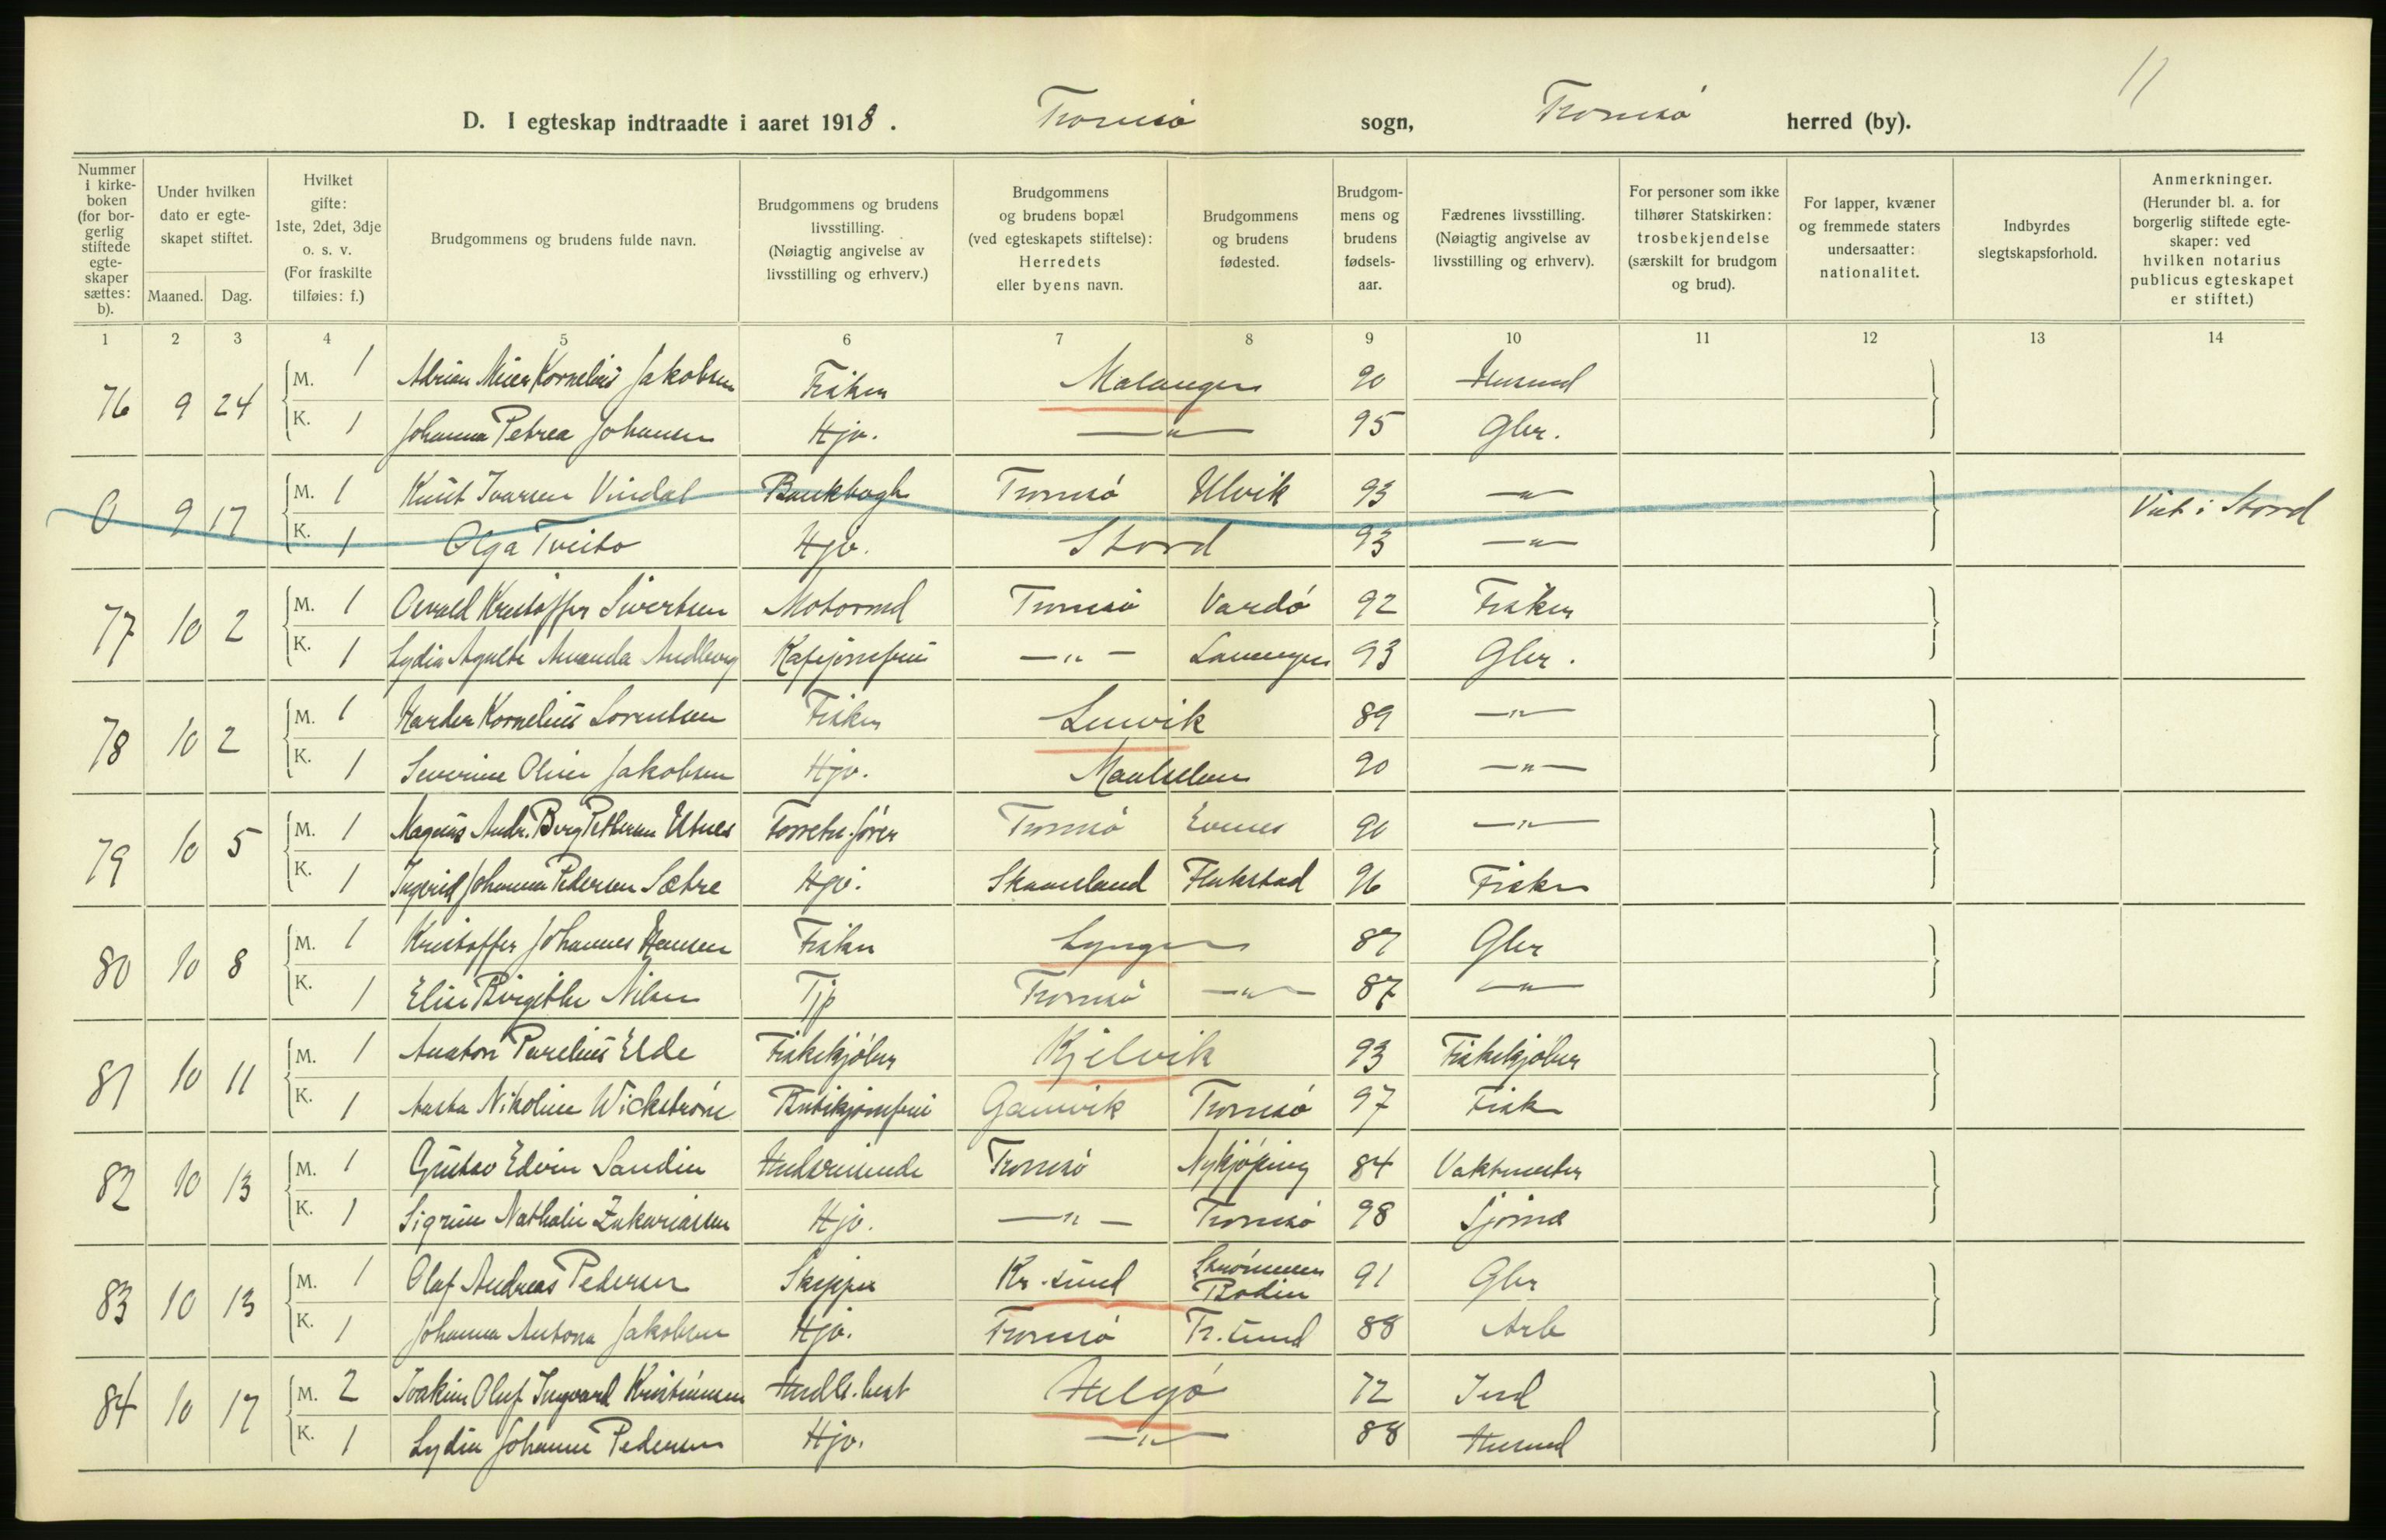 11
D. I egteskap indtraadte i aaret 1918. Tromsø sogn, Tromsø herred (by).
Nummer i kirkeboken (for borgerlig stiftede egteskaper sættes: b).
Under hvilken dato er egteskapet stiftet.
Maaned. Dag.
Hvilket gifte: 1ste, 2det, 3dje o. s. v. (For fraskilte tilføies: f.)
Brudgommens og brudens fulde navn.
Brudgommens og brudens livsstilling. (Nøiagtig angivelse av livsstilling og erhverv.)
Brudgommens og brudens bopæl (ved egteskapets stiftelse): Herredets eller byens navn.
Brudgommens og brudens fødested.
Brudgommens og brudens fødselsaar.
Fædrenes livsstilling. (Nøiagtig angivelse av livsstilling og erhverv).
For personer som ikke tilhører Statskirken: trosbekjendelse (særskilt for brudgom og brud).
For lapper, kvæner og fremmede staters undersaatter: nationalitet.
Indbyrdes slegtskapsforhold.
Anmerkninger. (Herunder bl. a. for borgerlig stiftede egteskaper: ved hvilken notarius publicus egteskapet er stiftet.)
1 2 3 4 5 6 7 8 9 10 11 12 13 14
76 9 24 M. 1 Adrian Meier Kornelius Jakobsen Fisker Malangen 90 Husmd
K. 1 Johanna Petrea Johansen Hjv. —"— 95 Gbr.
0 9 17 M. 1 Knut Ivarsen Vindal Bankbogh Tromsø Ulvik 93 —"— Viet i Stord
K. 1 Olga Tveito Hjv. Stord 93 —"—
77 10 2 M. 1 Osvald Kristoffer Sivertsen Motormd Tromsø Vardø 92 Fisker
K. 1 Lydia Agnethe Amanda Andberg Kafejomfru —"— Lavangen 93 Gbr.
78 10 2 M. 1 Harder Kornelius Lorentsen Fisker Lenvik 89 —"—
K. 1 Severine Oline Jakobsen Hjv. Maalselven 90 —"—
79 10 5 M. 1 Magnus Andr. Berg Pettersen Elsnes Forretn.fører Tromsø Evenes 90 —"—
K. 1 Ingerid Johanna Pedersen Sætre Hjv. Skaanland Flakstad 96 Fisker
80 10 8 M. 1 Kristoffer Johannes Hansen Fisker Lyngen 87 Gbr
K. 1 Elise Birgithe Nilsen Tjp Tromsø —"— 87 —"—
81 10 11 M. 1 Anaton Parelius Elde Fiskekjøber Kjelvik 93 Fiskekjøber
K. 1 Aasta Nikoline Wickstrøm Butikjomfru Gamvik Tromsø 97 Fisk
82 10 13 M. 1 Gustav Edvin Sandin Handelsreisende Tromsø Nykjøping 84 Vaktmester
K. 1 Sigrun Nathalie Zakariassen Hjv. —"— Tromsø 98 Sjømd
83 10 13 M. 1 Olaf Andreas Pedersen Skipper Kr.sund Bodin 91 Gbr
K. 1 Johanna Antona Jakobsen Hjv. Tromsø Tr.sund 88 Arb
84 10 17 M. 2 Joakim Oluf Ingvard Kristiansen Handls.best Helgø 72 Ind
K. 1 Lydia Johanne Pedersen Hjv. —"— 88 Husmd